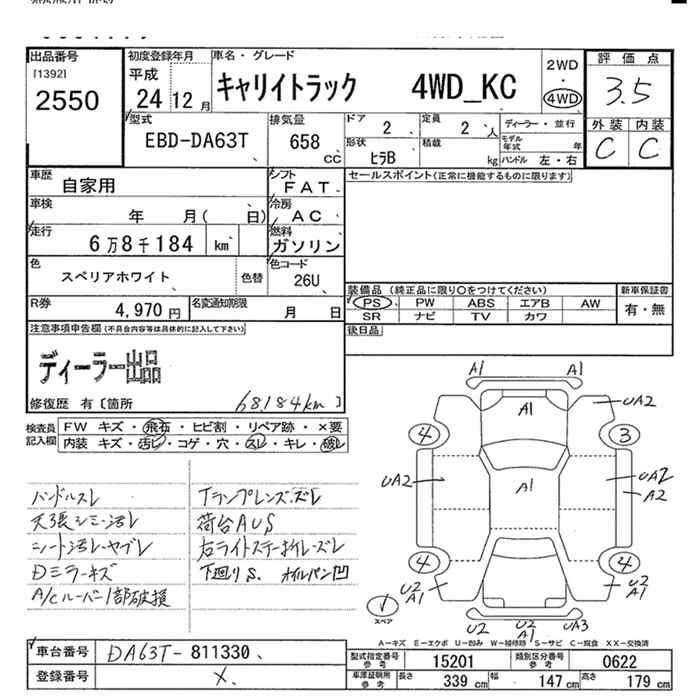 出品番号
[1392]
2550
初度登録年月
平成
24 12 月
車名・グレード
キャリイトラック 4WD_KC
2WD
・
4WD
評価点
3.5
外装 内装
C C
型式
EBD-DA63T
排気量
658
cc
ドア
2
定員
2 人
ディーラー・並行
形状
ヒラB
積載
kg
モデル年式 年
ハンドル 左・右
車歴
自家用
シフト
FAT
セールスポイント(正常に機能するものに限ります)
車検
年 月( 日)
冷房
AC
走行
6万8千184 km
燃料
ガソリン
色
スペリアホワイト
色替
色コード
26U
装備品 (純正品に限り○をつけてください)
新車保証書
PS PW ABS エアB AW
有・無
SR ナビ TV カワ
R券
4,970 円
名変通知期限
月 日
後日品
注意事項申告欄(不具合内容等は具体的に記入して下さい)
ディーラー出品
修復歴 有〔箇所 68,184km 〕
検査員記入欄
FW キズ・飛石・ヒビ割・リペア跡・×要
内装 キズ・汚レ・コゲ・穴・スレ・キレ・破レ
ハンドルスレ
天張シミ・汚レ
シート汚レ・ヤブレ
Dミラーキズ
A/Cルーバー1部破損
Tランプレンズズレ
荷台AUS
右ライトステー折レ・ズレ
下廻りS、オイルパン凹
A1 A1
A1
UA2
4 3
UA2
A1
UA2
A2
4 4
U2
A1
U2
A1
スペア
U2
U2
A1
UA3
A-キズ E-エクボ U-凹み W-補修跡 S-サビ C-腐食 XX-交換済
車台番号
DA63T-811330
登録番号
×
型式指定番号
参考
15201
類別区分番号
参考
0622
車庫証明用
参考
長さ
339 cm
幅
147 cm
高さ
179 cm